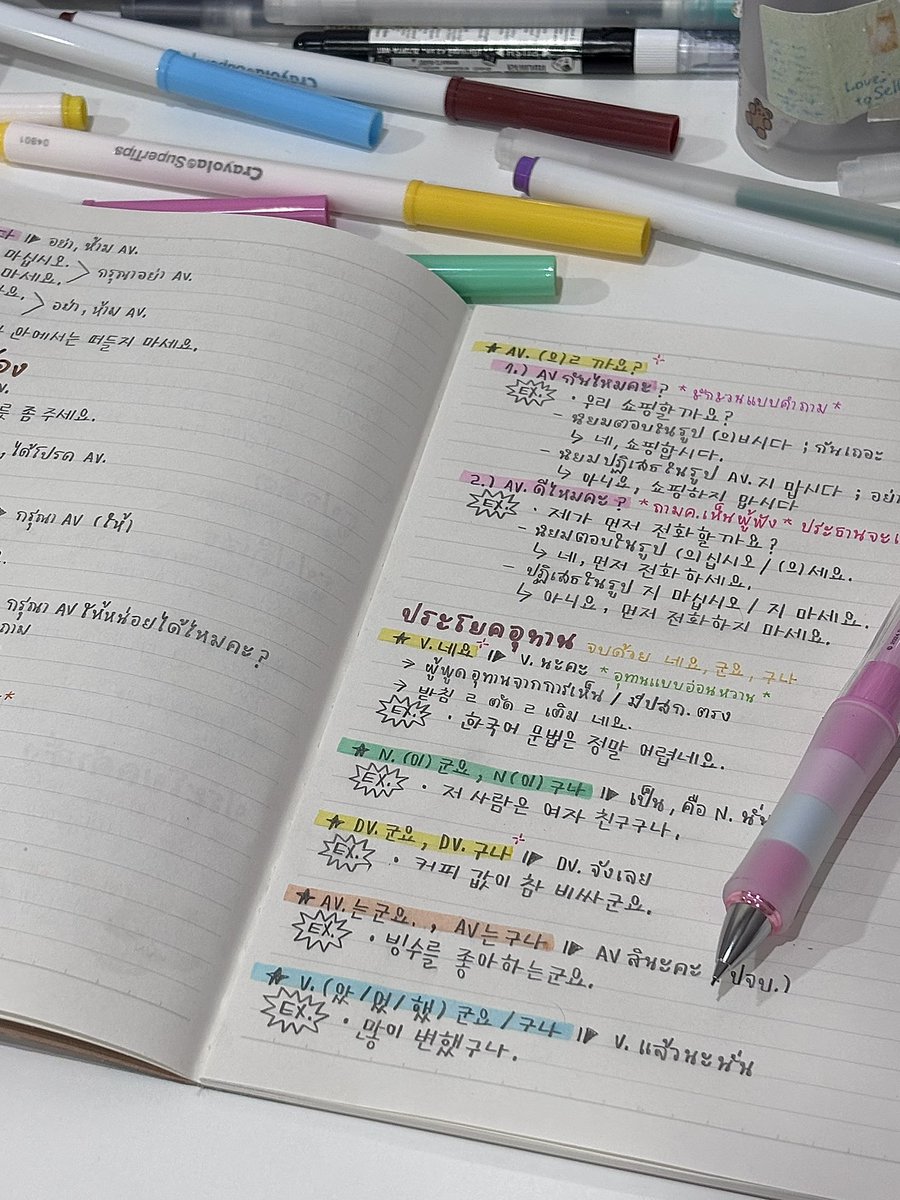 Crayola®SuperTips
04801
Crayola®Super
Love:
to Sell
อย่า, ห้าม AV.
마십시오.
마세요.
กรุณาอย่า AV.
อย่า, ห้าม AV.
안에서는 떠들지 마세요.
좀 주세요.
, ได้โปรด AV.
กรุณา AV (ให้)
กรุณา AV ให้หน่อยได้ไหมคะ?
★ AV. (으)ㄹ 까요?
1.) AV กันไหมคะ? *ชักชวนแบบคำถาม*
EX. • 우리 쇼핑할까요?
- นิยมตอบในรูป (으)ㅂ시다 ; กันเถอะ
↳ 네, 쇼핑합시다.
- นิยมปฏิเสธในรูป AV. 지 맙시다 ; อย่า
↳ 아니요, 쇼핑하지 맙시다
2.) AV. ดีไหมคะ? *ถามค.เห็นผู้ฟัง* ประธานจะ
EX. • 제가 먼저 전화할까요?
- นิยมตอบในรูป (으)십시오 / (으)세요.
↳ 네, 먼저 전화하세요.
- ปฏิเสธในรูป 지 마십시오 / 지 마세요.
↳ 아니요, 먼저 전화하지 마세요.
ประโยคอุทาน จบด้วย 네요, 군요, 구나
★ V.네요 ⫸ V. นะคะ *อุทานแบบอ่อนหวาน*
→ ผู้พูดอุทานจากการเห็น / มีปสก. ตรง
→ 받침 ㄹ ตัด ㄹ เติม 네요.
EX. • 한국어 문법은 정말 어렵네요.
★ N. (이) 군요, N (이) 구나 ⫸ เป็น, คือ N. นั่น
EX. • 저 사람은 여자 친구구나.
★ DV. 군요, DV. 구나 ⫸ DV. จังเลย
EX. • 커피 값이 참 비싸군요.
★ AV.는군요., AV는구나 ⫸ AV สินะคะ ปจบ.)
EX. • 빙수를 좋아하는군요.
★ V. (았/었/했) 군요 / 구나 ⫸ V. แล้วนะนั่น
EX. • 많이 변했구나.